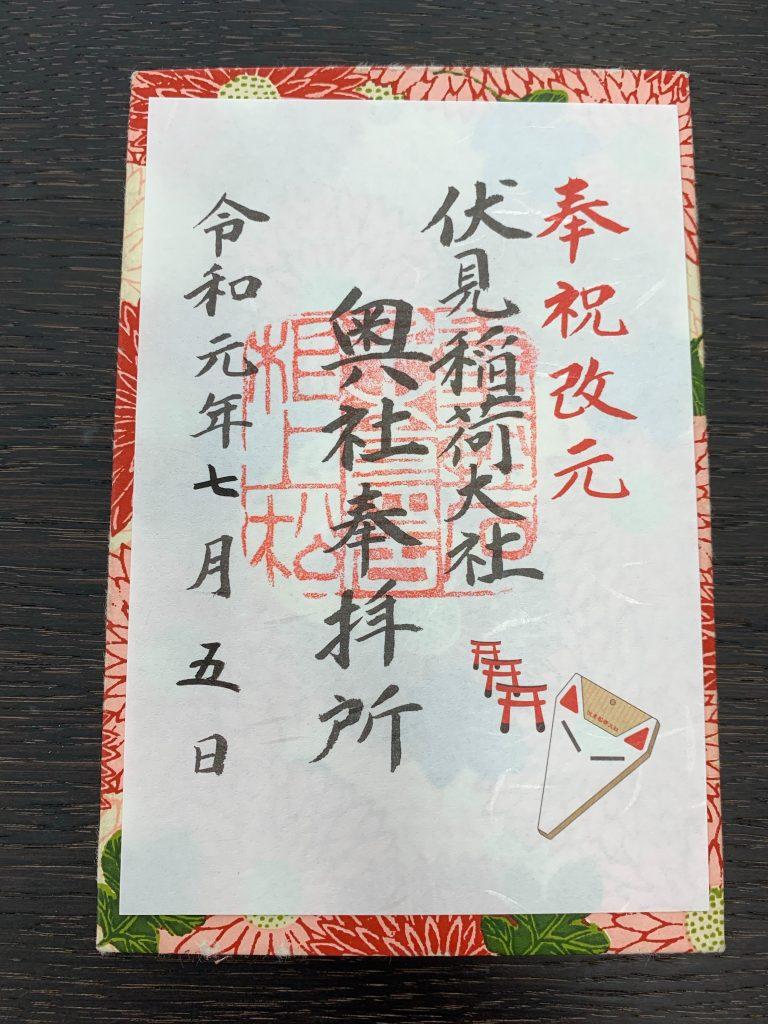 奉祝改元
伏見稲荷大社
奥社奉拝所
令和元年七月五日